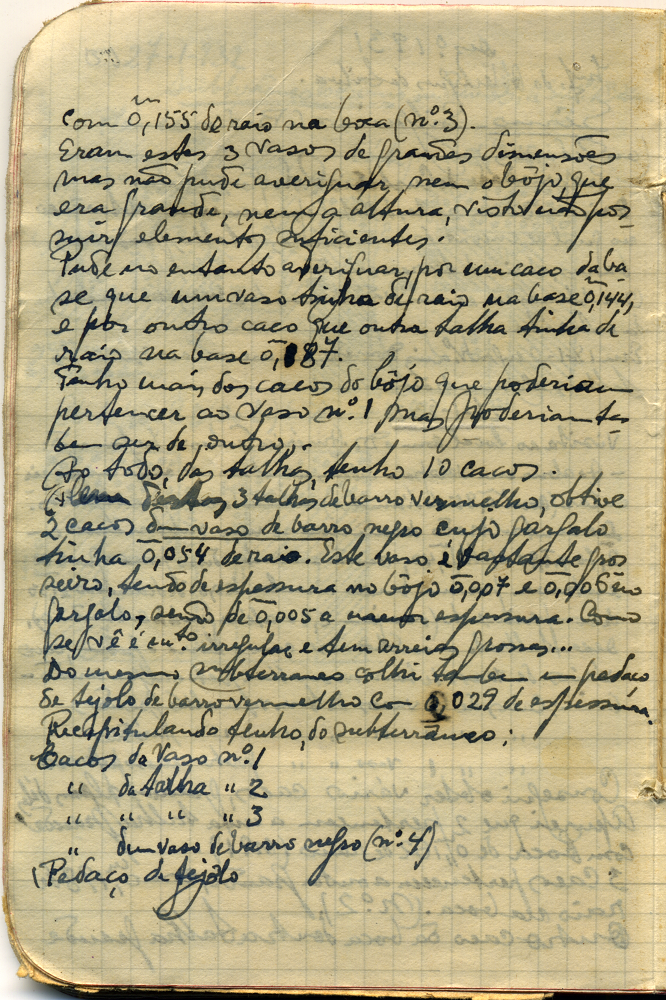 com 0,155 de raio na boca (nº. 3).
Eram estes 3 vasos de grandes dimensões
mas não pude averiguar, nem o bôjo, que
era grande, nem a altura, visto não pos-
suir elementos suficientes.
Pude no entanto averiguar, por um caco da ba-
se que um vaso tinha de raio na base 0,144,
e por outro caco que outra talha tinha de
raio na base 0,187.
Tenho mais dos cacos do bôjo que poderiam
pertencer ao vaso nº. 1 mas poderiam ta-
bem ser de outro.
Ao todo, das talhas, tenho 10 cacos.
Alem destas 3 talhas de barro vermelho, obtive
2 cacos dum vaso de barro negro cujo gargalo
tinha 0,054 de raio. Este vaso é bastante gros
seiro, tendo de espessura no bôjo 0,007 e 0,006 no
gargalo, sendo de 0,005 a menor espessura. Como
se vê é mtº irregular e tem arreios grossos...
Do mesmo subterraneo colhi tambem um pedaço
de tejolo de barro vermelho com 0,029 de espessura.
Recapitulando tenho, do subterrâneo:
Cacos do Vaso nº. 1
" da talha " 2
" " " " 3
" dum vaso de barro negro (nº. 4)
1 Pedaço de tejolo